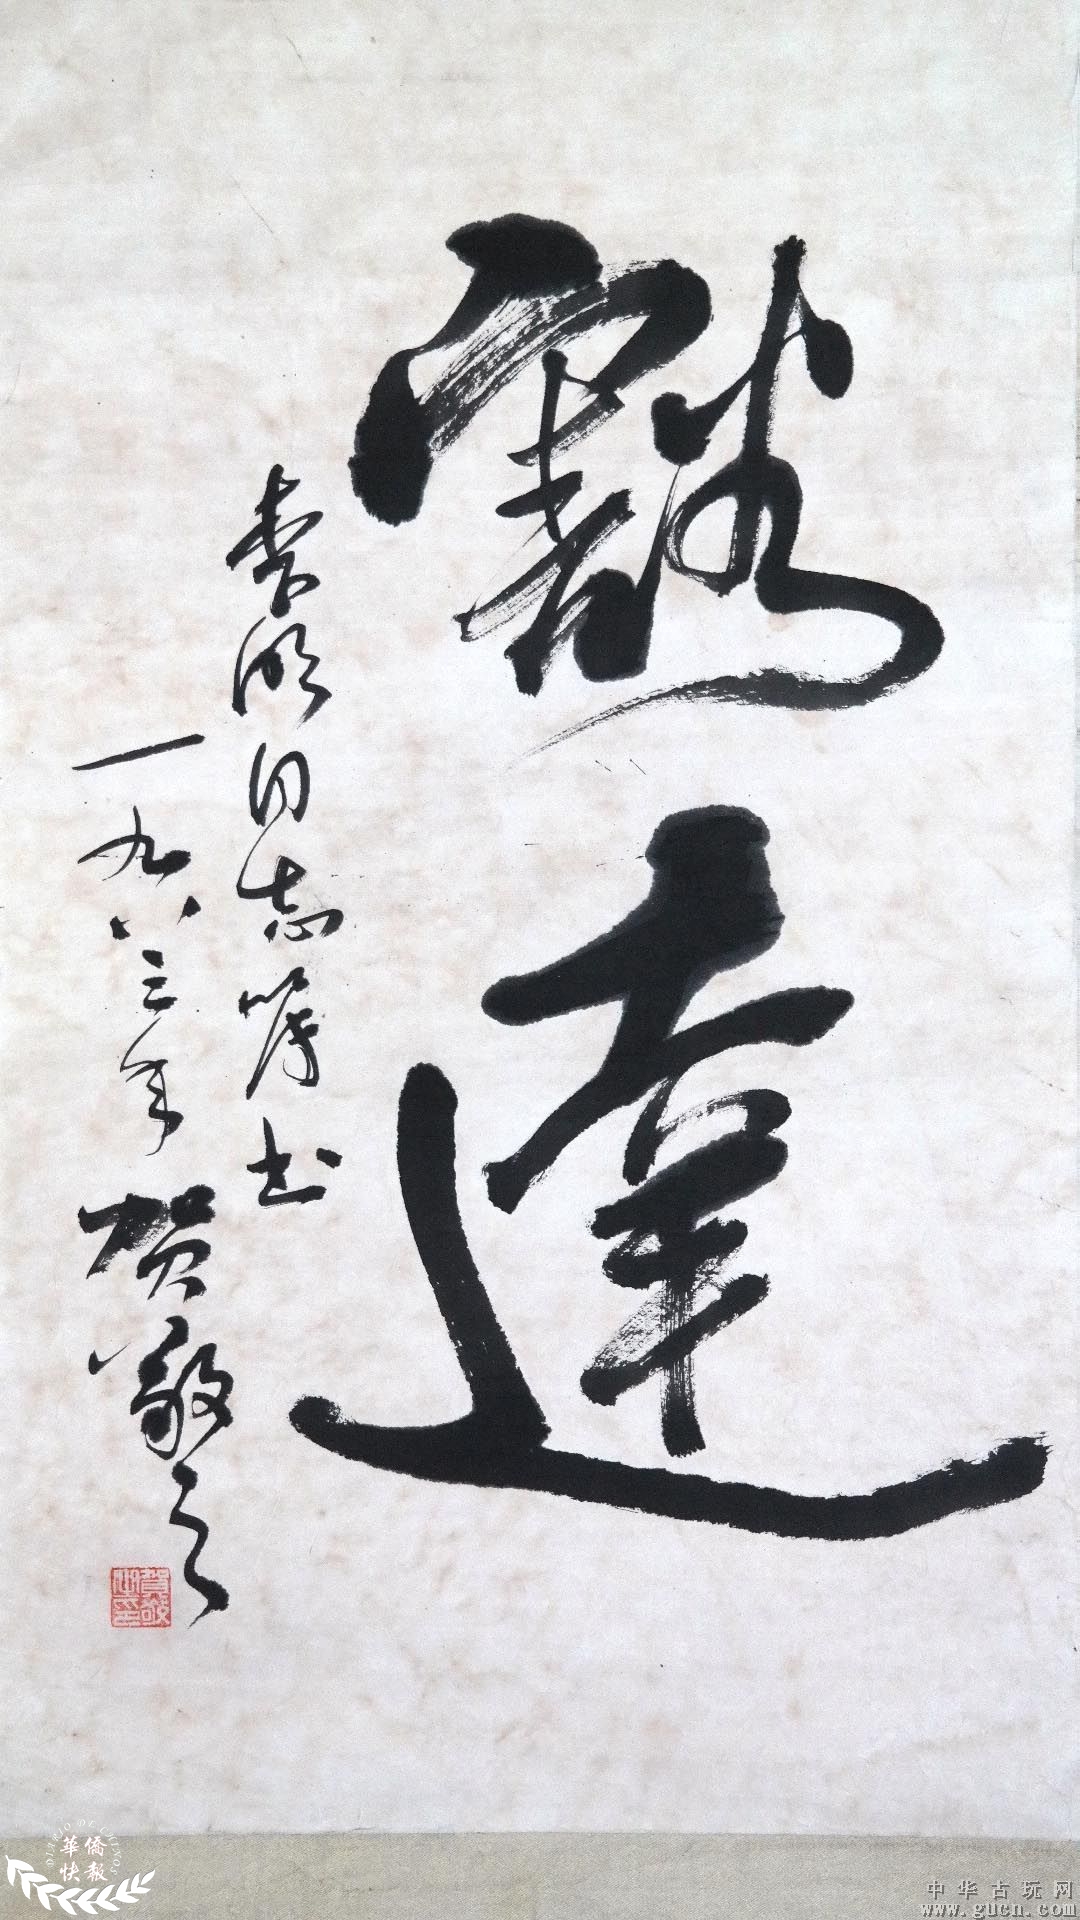 豁達
同志嘱书
一九八三年 贺敬之
賀敬之印
華僑
快報
中华古玩网
www.gucn.com